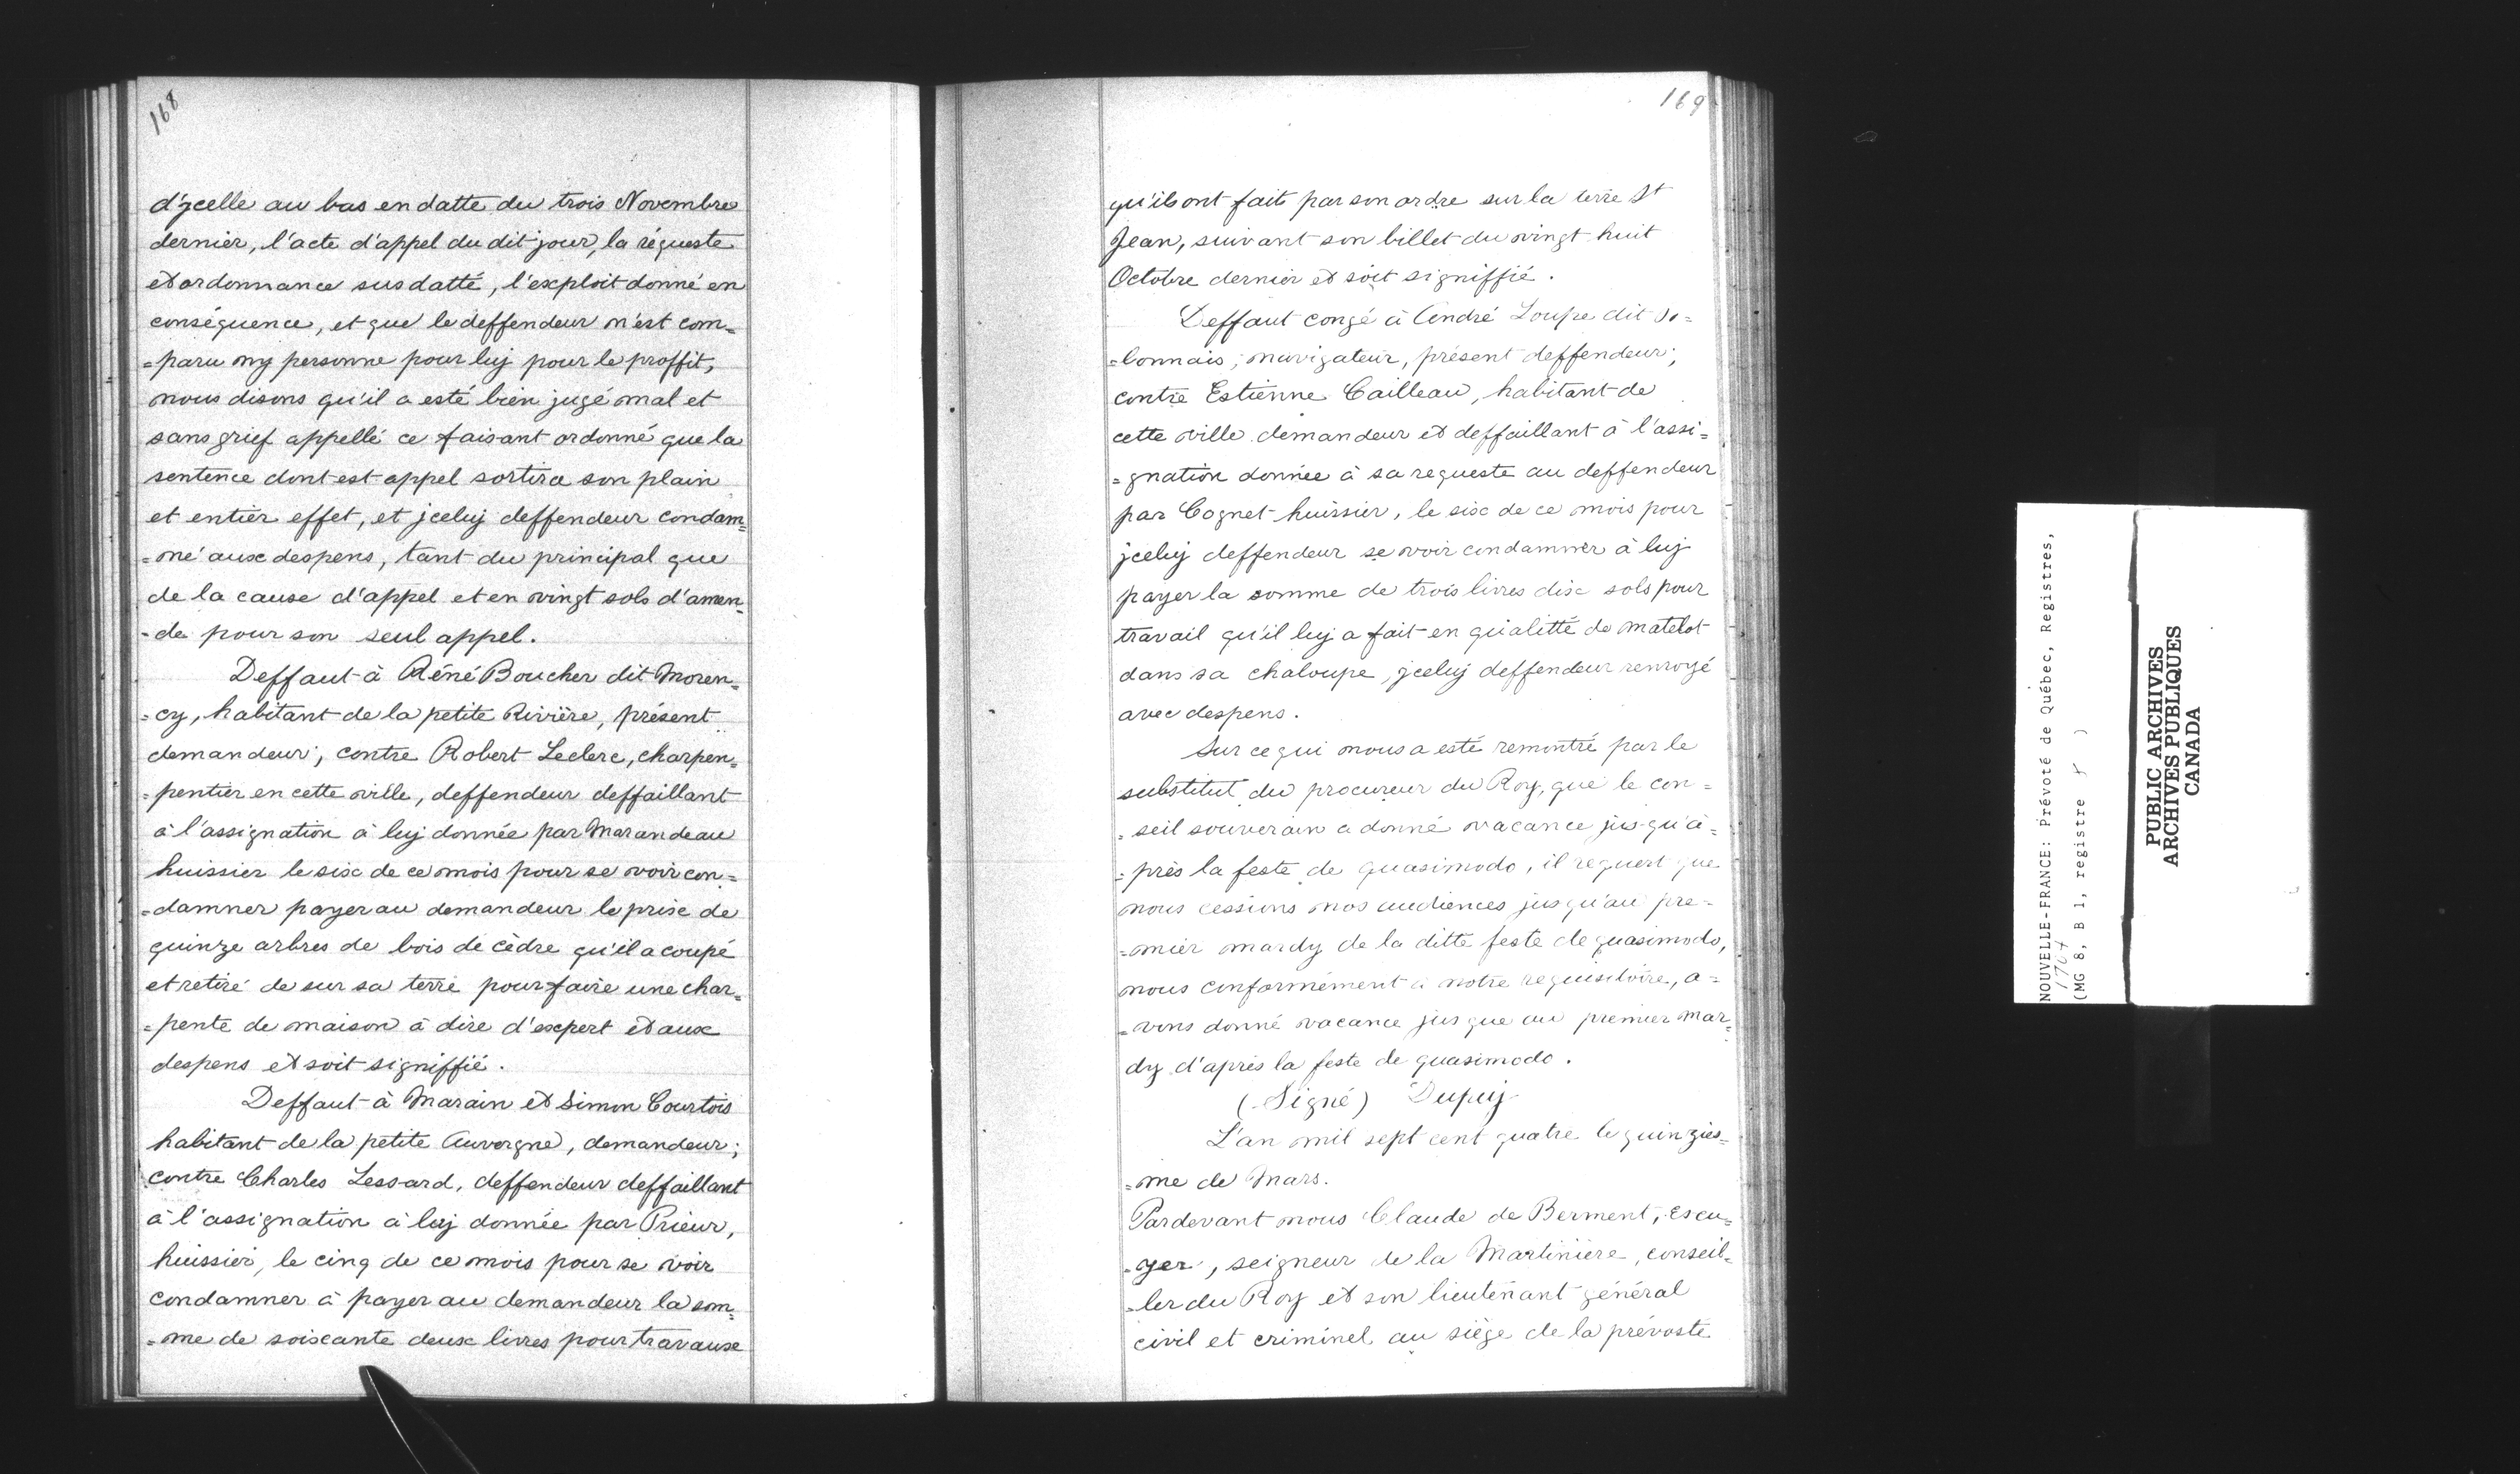 168
d'ycelle au bas en datte du trois Novembre
dernier, l'acte d'appel du dit jour, la réqueste
et ordonnance susdatté, l'exploit donné en
conséquence, et que le deffendeur n'est com=
=paru ny personne pour luy pour le proffit,
nous disons qu'il a esté bien jugé mal et
sans grief appellé ce faisant ordonné que la
sentence dont est appel sortira son plain
et entier effet, et jceluy deffendeur condam=
=né aux despens, tant du principal que
de la cause d'appel et en vingt sols d'amen=
=de pour son seul appel.
Deffaut à Réné Boucher dit Moren=
=cy, habitant de la petite Rivière, présent
demandeur; contre Robert Leclerc, charpen=
=pentier en cette ville, deffendeur deffaillant
à l'assignation à luy donnée par Marandeau
huissier le six de ce mois pour se voir con=
=damner payer au demandeur le prix de
quinze arbres de bois de cèdre qu'il a coupé
et retiré de sur sa terre pour faire une char=
=pente de maison à dire d'expert et aux
despens et soit signiffié.
Deffaut à Marain et Simon Courtois
habitant de la petite Auvergne, demandeur;
contre Charles Lessard, deffendeur deffaillant
à l'assignation à luy donnée par Prieur,
huissier, le cinq de ce mois pour se voir
condamner à payer au demandeur la som=
=me de soixante deux livres pour travaux
169
qu'ils ont faits par son ordre sur la terre St
Jean, suivant son billet du vingt huit
Octobre dernier et soit signiffié.
Deffaut congé à André Loupe dit Po=
=lonnais, navigateur, présent deffendeur;
contre Estienne Cailleau, habitant de
cette ville demandeur et deffaillant à l'assi=
=gnation donnée à sa requeste au deffendeur
par Cognet huissier, le six de ce mois pour
jceluy deffendeur se voir condamner à luy
payer la somme de trois livres dix sols pour
travail qu'il luy a fait en qualitté de matelot
dans sa chaloupe, jceluy deffendeur renvoyé
avec despens.
Sur ce qui nous a esté remontré par le
substitut du procureur du Roy, que le con=
=seil souverain a donné vacance jusqu'a=
=près la feste de quasimodo, il requert que
nous cessions nos audiences jusqu'au pre=
=mier mardy de la ditte feste de quasimodo,
nous conformément à notre requisitoire, a=
=vons donné vacance jusque au premier mar=
dy d'après la feste de quasimodo.
(Signé) Dupuy
L'an mil sept cent quatre le quinzies=
=me de Mars.
Pardevant nous Claude de Berment, escu=
=yer, seigneur de la Martinière, conseil=
=ler du Roy et son lieutenant général
civil et criminel au siège de la prévosté
NOUVELLE-FRANCE: Prévoté de Québec, Registres,
1704
(MG 8, B 1, registre )
PUBLIC ARCHIVES
ARCHIVES PUBLIQUES
CANADA